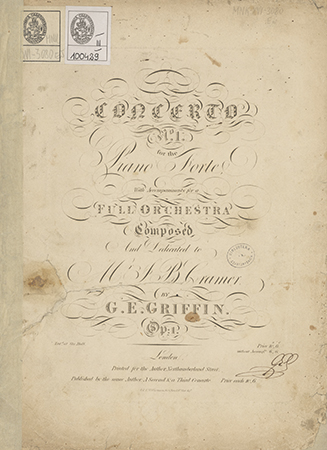 N
100429
A
CONCERTO
No. 1.
for the
Piano Forte
With Accompaniments for a
FULL ORCHESTRA
Composed
And Dedicated to
Mr. J. B. Cramer
BY
G. E. GRIFFIN.
Op: 1.
Ent. at Sta. Hall.
Price
London
Printed for the Author,
Published by the same Author, A Second & a Third Concerto Price each